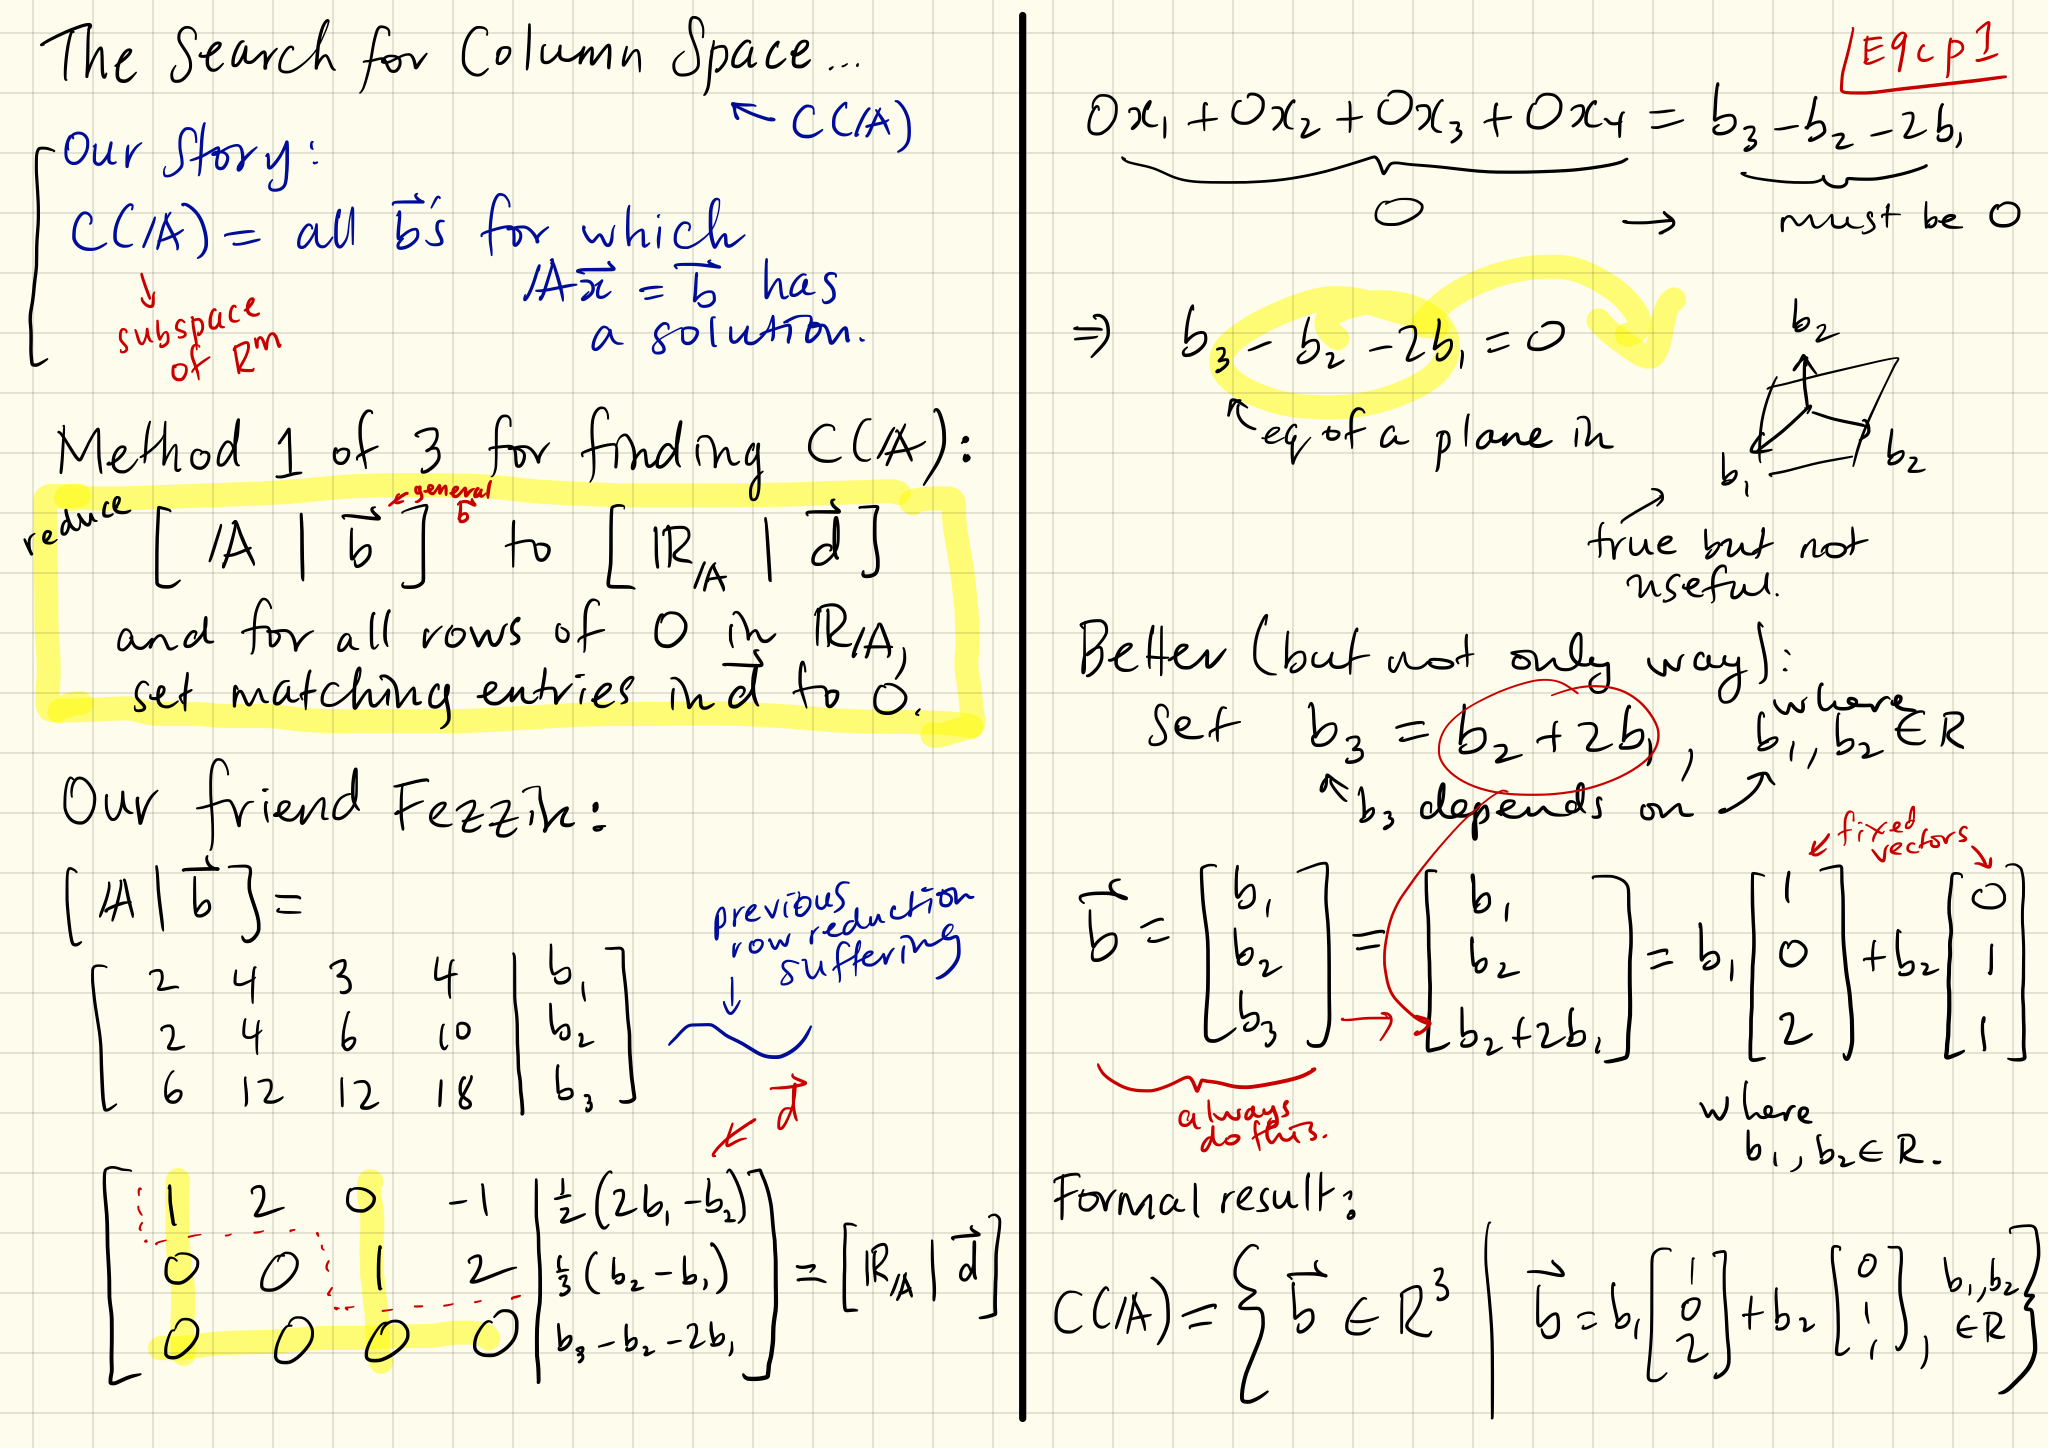 The Search for Column Space...
← C(A)
Our Story:
C(A) = all b⃗'s for which
A x⃗ = b⃗ has
a solution.
↓
subspace
of Rᵐ
Method 1 of 3 for finding C(A):
← general
b⃗
reduce [ A | b⃗ ] to [ R_A | d⃗ ]
and for all rows of 0 in R_A,
set matching entries in d⃗ to 0.
Our friend Fezzik:
[ A | b⃗ ] =
previous
row reduction
suffering
↓
2 4 3 4 | b₁
2 4 6 10 | b₂
6 12 12 18 | b₃
↙ d⃗
1 2 0 -1 | ½(2b₁ - b₂)
0 0 1 2 | ⅓(b₂ - b₁) = [ R_A | d⃗ ]
0 0 0 0 | b₃ - b₂ - 2b₁
E9cp1
0x₁ + 0x₂ + 0x₃ + 0x₄ = b₃ - b₂ - 2b₁
0 → must be 0
⇒ b₃ - b₂ - 2b₁ = 0
eq of a plane in
b₂
b₁ b₂
true but not
useful.
Better (but not only way):
where
Set b₃ = b₂ + 2b₁, b₁, b₂ ∈ R
b₃ depends on
fixed
vectors
b⃗ = [b₁ b₂ b₃] = [b₁ b₂ b₂+2b₁] = b₁ [1 0 2] + b₂ [0 1 1]
always
do this.
where
b₁, b₂ ∈ R.
Formal result:
C(A) = { b⃗ ∈ R³ | b⃗ = b₁ [1 0 2] + b₂ [0 1 1], b₁, b₂ ∈ R }